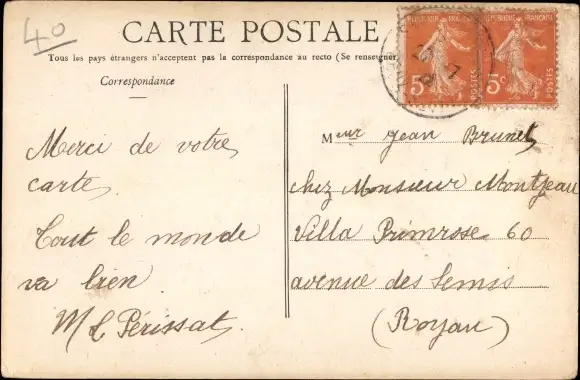 40
CARTE POSTALE
Tous les pays étrangers n'acceptent pas la correspondance au recto (Se renseigner
Correspondance
RÉPUBLIQUE FRANÇAISE
5c
POSTES
5c
POSTES
Merci de votre
carte
Tout le monde
va bien
M L Périssat
Meur Jean Brunet
chez Monsieur Montjeau
Villa Primrose 60
avenue des Semis
(Royan)